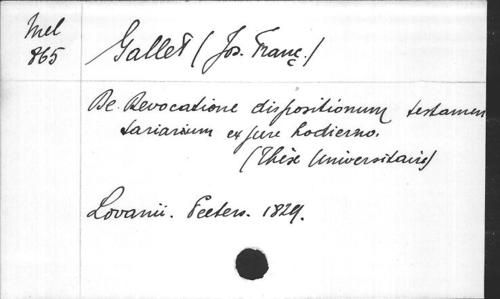 Mel
865
Gallet (Jos. Franç.)
De Revocatione dispositionum testamen
tariarium ex jure hodierno.
(Thèse Universitaire)
Lovanii. Peeters. 1829.